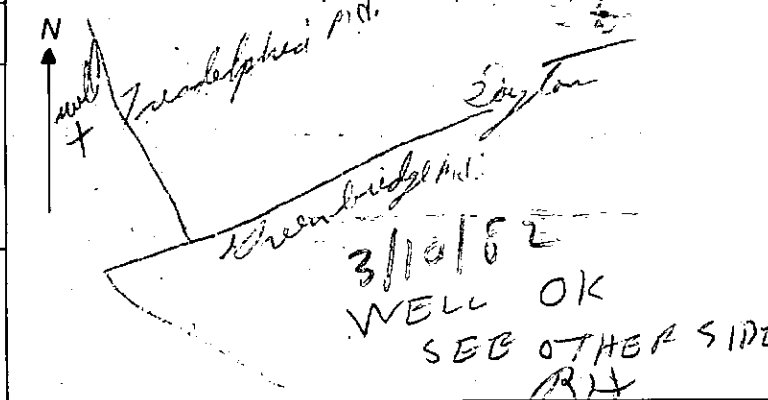 N
well
Triadelphia Rd.
Dayton
Greenbridge Rd.
3/10/82
WELL OK
SEE OTHER SIDE
RH